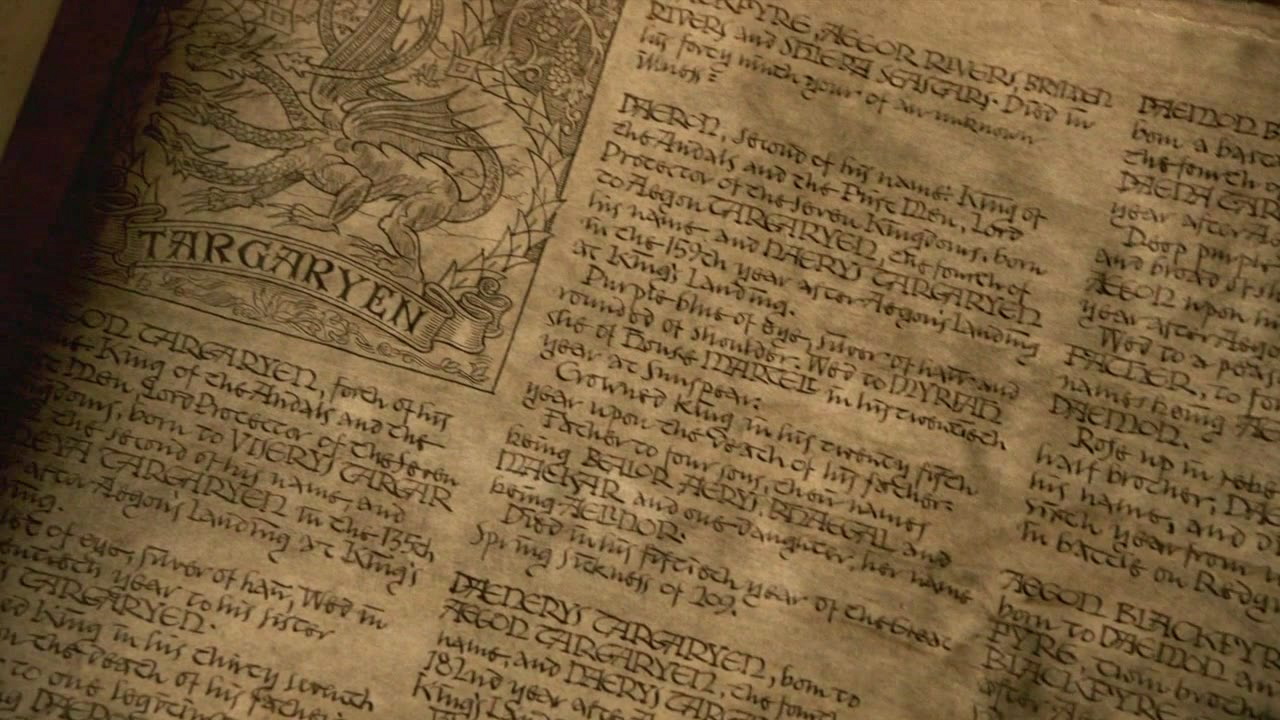 TARGARYEN
ON TARGARYEN, forth of his
King of the Andals and the
t Men Lord Protector of the Seven
gdoms, born to VISERYS TARGAR
the second of his name, and
TARGARYEN in the 135th
after Aegon's Landing at King's
ing.
of eye, silver of hair, Wed in
year to his sister
TARGARYEN.
ed King in his thirty seventh
n the death of his father.
to one
RIVERS, AEGOR RIVERS, BRYNDEN
RIVERS and SHIERA SEASTARS. Died in
his forty ninth year of an unknown
illness.
DAERON, second of his name. King of
the Andals and the First Men, Lord
Protector of the Seven Kingdoms, born
to Aegon TARGARYEN, the fourth of
his name and NAERYS TARGARYEN
in the 159th year after Aegon's Landing
at King's Landing.
Purple blue of eye, silver of hair and
rounded of shoulder. Wed to MYRIAH
she of House MARTELL in his twentieth
year at Sunspear.
Crowned King in his twenty fifth
year upon the death of his father.
Father to four sons, their names
being BAELOR AERYS, RHAEGAL and
MAEKAR and one daughter, her name
being AELINOR.
Died in his fiftieth year of the Great
Spring Sickness of 209.
DAENERYS TARGARYEN, born to
AEGON TARGARYEN, the fourth
name, and NAERYS TAR
182nd year after A
King's
DAEMON B
born a bast
the fourth o
DAENA TAR
year after A
Deep purple
and broad of sh
AEGON upon hi
year after Aego
Wed to a
FATHER, to fo
names being AE
DAEMON.
Rose up in rebe
half brother, DA
his name, and d
sixth year from
in battle on Redg
AEGON BLACKFYR
born to DAEMON an
PYRE, twin brothe
BLACKFYRE
after A